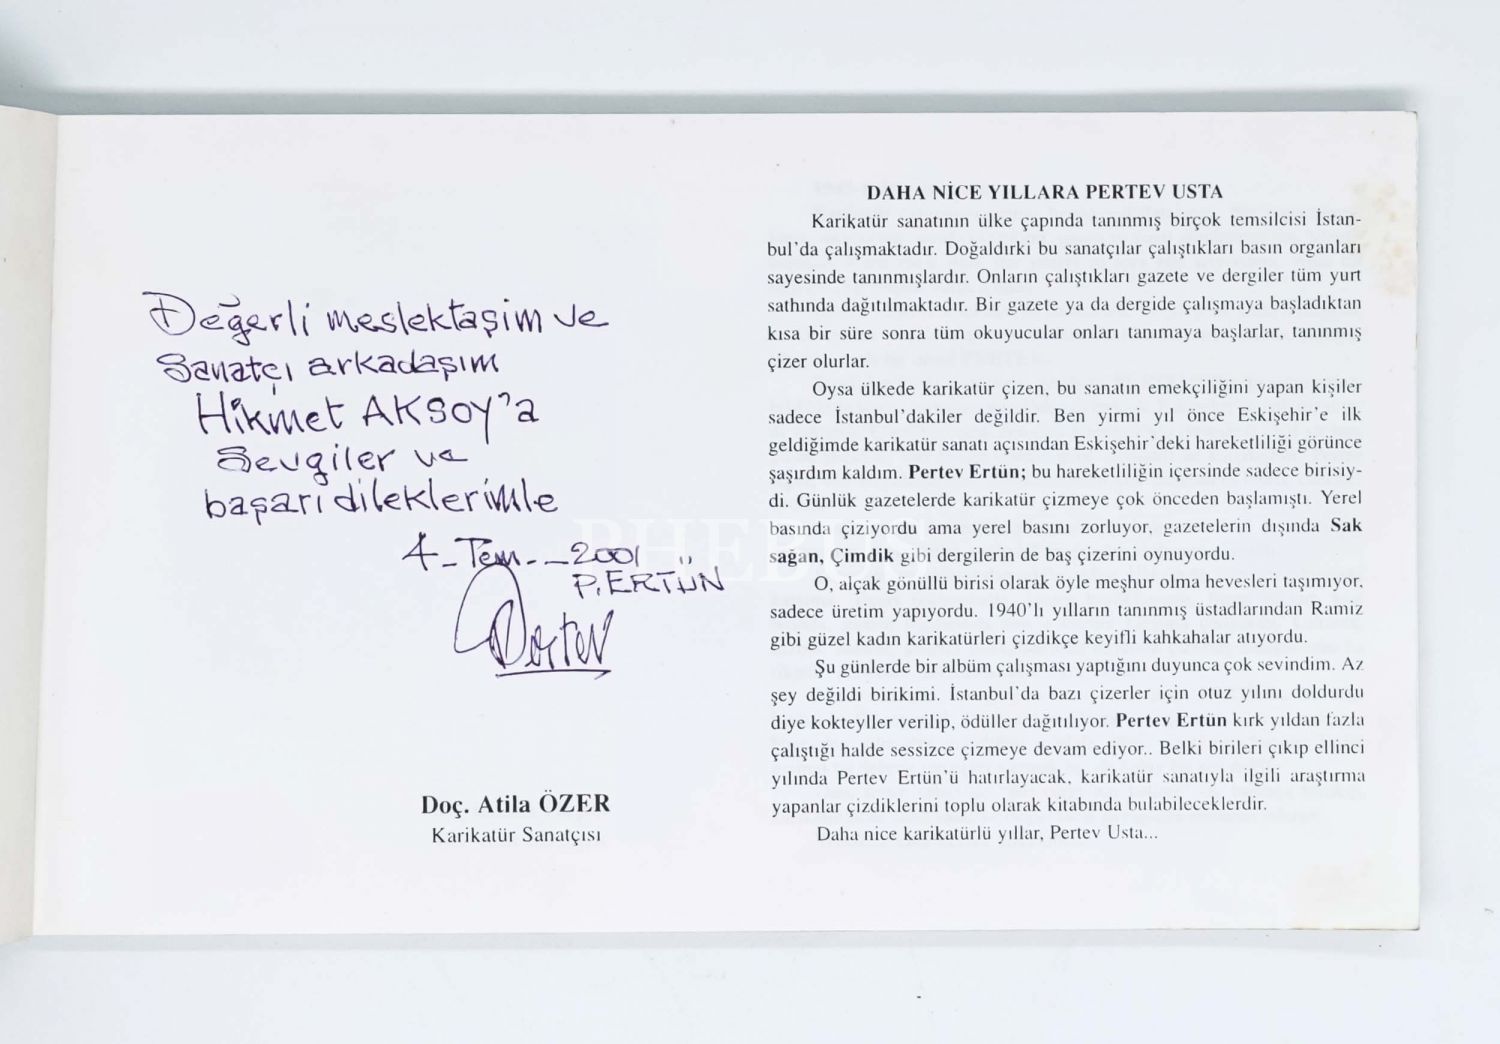 Değerli meslektaşim ve
Sanatçı arkadaşım
Hikmet AKSOY'a
Sevgiler ve
başari dileklerimle
4 - Tem. - - 2001
P. ERTÜN
Pertev
Doç. Atila ÖZER
Karikatür Sanatçısı
DAHA NİCE YILLARA PERTEV USTA
Karikatür sanatının ülke çapında tanınmış birçok temsilcisi İstan-
bul'da çalışmaktadır. Doğaldırki bu sanatçılar çalıştıkları basın organları
sayesinde tanınmışlardır. Onların çalıştıkları gazete ve dergiler tüm yurt
sathında dağıtılmaktadır. Bir gazete ya da dergide çalışmaya başladıktan
kısa bir süre sonra tüm okuyucular onları tanımaya başlarlar, tanınmış
çizer olurlar.
Oysa ülkede karikatür çizen, bu sanatın emekçiliğini yapan kişiler
sadece İstanbul'dakiler değildir. Ben yirmi yıl önce Eskişehir'e ilk
geldiğimde karikatür sanatı açısından Eskişehir'deki hareketliliği görünce
şaşırdım kaldım. Pertev Ertün; bu hareketliliğin içersinde sadece birisiy-
di. Günlük gazetelerde karikatür çizmeye çok önceden başlamıştı. Yerel
basında çiziyordu ama yerel basını zorluyor, gazetelerin dışında Sak
sağan, Çimdik gibi dergilerin de baş çizerini oynuyordu.
O, alçak gönüllü birisi olarak öyle meşhur olma hevesleri taşımıyor,
sadece üretim yapıyordu. 1940'lı yılların tanınmış üstadlarından Ramiz
gibi güzel kadın karikatürleri çizdikçe keyifli kahkahalar atıyordu.
Şu günlerde bir albüm çalışması yaptığını duyunca çok sevindim. Az
şey değildi birikimi. İstanbul'da bazı çizerler için otuz yılını doldurdu
diye kokteyller verilip, ödüller dağıtılıyor. Pertev Ertün kırk yıldan fazla
çalıştığı halde sessizce çizmeye devam ediyor.. Belki birileri çıkıp ellinci
yılında Pertev Ertün'ü hatırlayacak, karikatür sanatıyla ilgili araştırma
yapanlar çizdiklerini toplu olarak kitabında bulabileceklerdir.
Daha nice karikatürlü yıllar, Pertev Usta...
PHEBUS